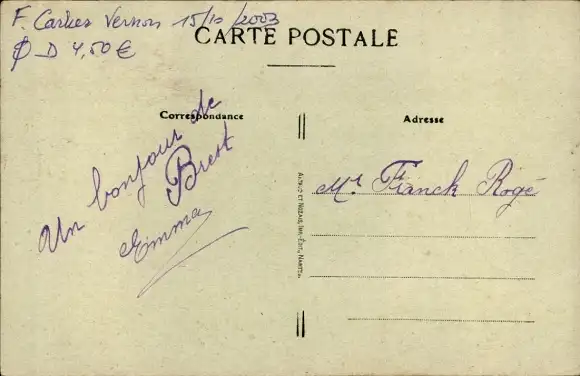 F. Carhes Vernon 15/10/2003
D 4,50 €
CARTE POSTALE
Correspondance
Adresse
Un bonjour de
Brest
Emma
Mr Franck Rogé
ARTAUD ET NOZAIS, IMP.-ÉDIT., NANTES